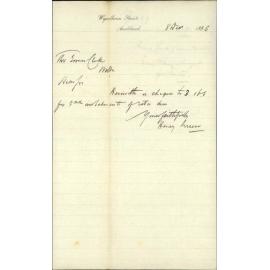 Wyndham Street
Auckland, 8 Dec 1886
The Town Clerk
Dear Sir
Herewith a cheque
for 2nd instalment of rates due
Yours faithfully
Henry